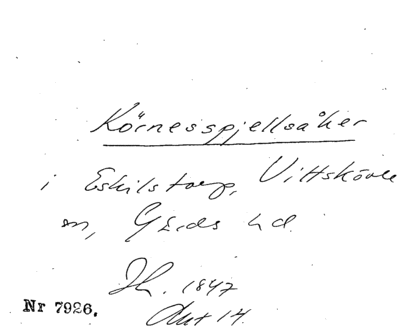 Körnesspjellsåker
i Eskilstorp, Vittskövle
sn, Gärds hd.
Jh. 1847
Akt 14.
Nr 7926.